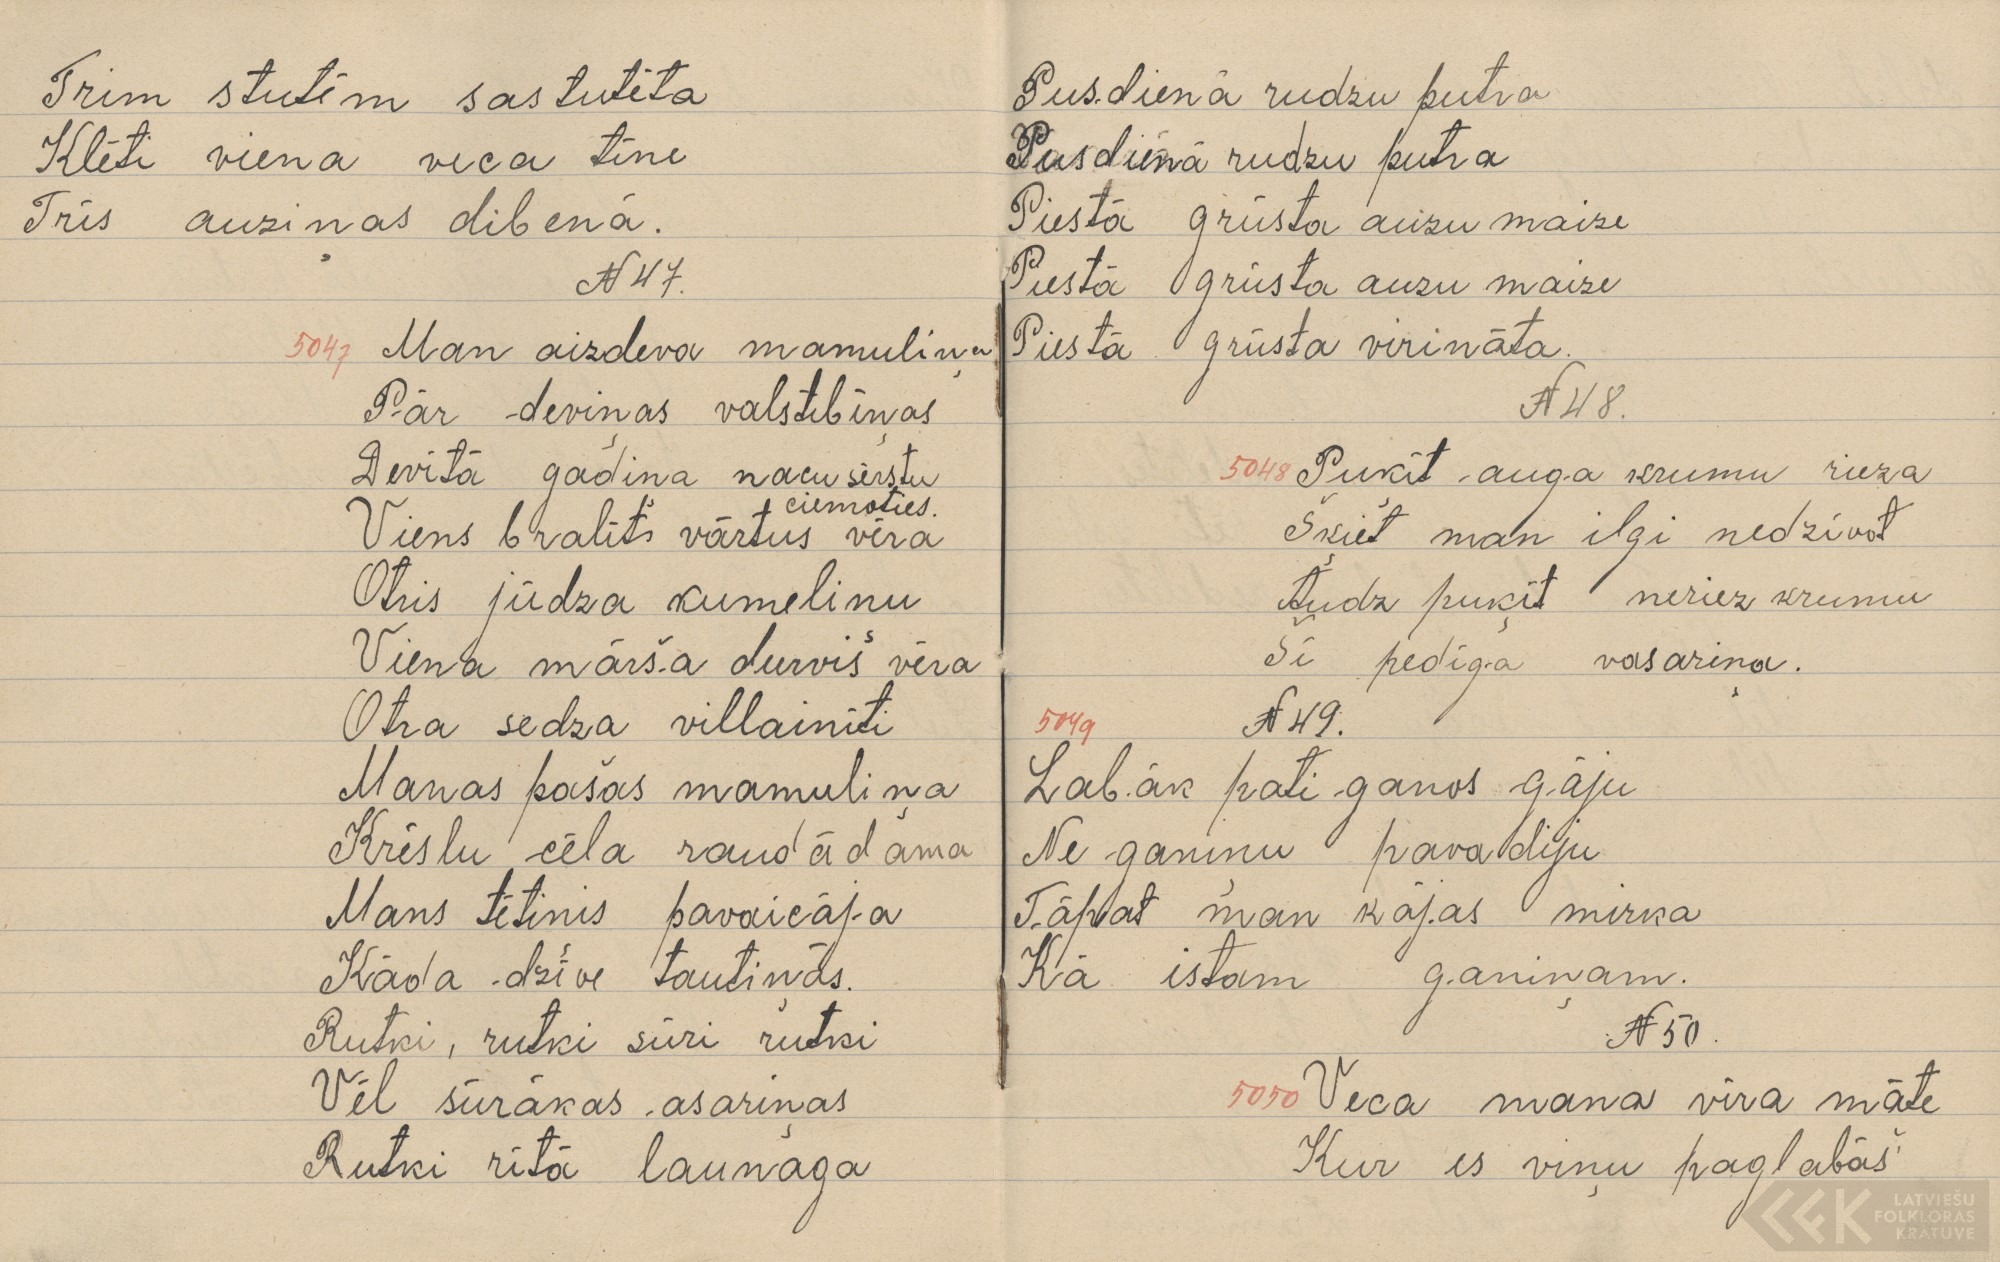 Trim stutēm sastutēta
Klēti viena veca tīne
Trīs auziņas dibenā.
N 47.
5047 Man aizdeva mamuliņa
Pār deviņas valstībiņas
Devītā gadiņa nacu sērstu
ciemoties.
Viens bralīts vārtus vēra
Otris jūdza kumelinu
Viena mārša durvis vēra
Otra sedza villainīti
Manas pašas mamuliņa
Krēslu cēla raudādama
Mans tētinis pavaicāja
Kāda dzīve tautiņās.
Rutki, rutki sūri rutki
Vēl sūrākas asariņas
Rutki rītā launaga
Pusdienā rudzu putra
Pusdienā rudzu putra
Piestā grūsta auzu maize
Piestā grūsta auzu maize
Piestā grūsta virināta.
N 48.
5048 Pukīt auga krumu rieza
Šķiet man ilgi nedzīvot
Audz puķīt neriez krumu
Šī pedīga vasariņa.
5049 N 49.
Labāk pati ganos gāju
Ne ganiņu pavadiju
Tāpat man kājas mirka
Kā istam ganiņam.
N 50.
5050 Veca mana vīra māte
Kur es viņu paglabāš
LATVIEŠU
FOLKLORAS
KRĀTUVE